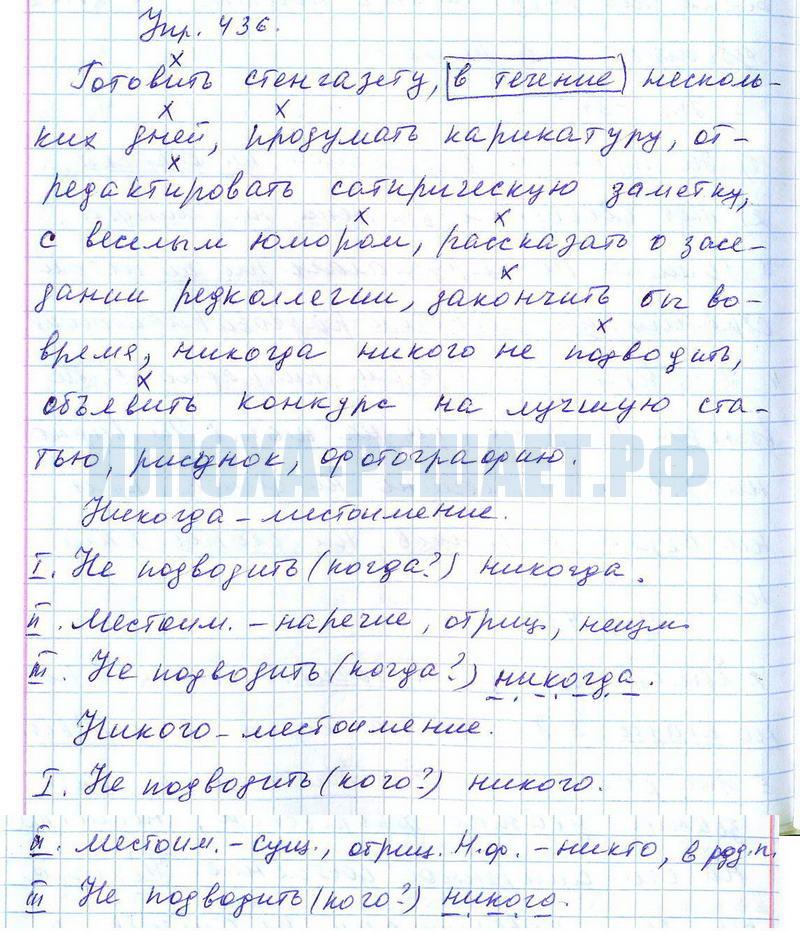 Упр. 436.
Готовить стенгазету, в течение несколь-
ких дней, продумать карикатуру, от-
редактировать сатирическую заметку,
с веселым юмором, рассказать о засе-
дании редколлегии, закончить бы во-
время, никогда никого не подводить,
объявить конкурс на лучшую ста-
тью, рисунок, фотографию.
ИЛЮХА-РЕШАЕТ.РФ
Никогда – местоимение.
I. Не подводить (когда?) никогда.
II. Местоим. – наречие, отриц., неизм.
III. Не подводить (когда?) никогда.
Никого – местоимение.
I. Не подводить (кого?) никого.
II. Местоим. – сущ., отриц. Н.ф. – никто, в род.п.
III Не подводить (кого?) никого.